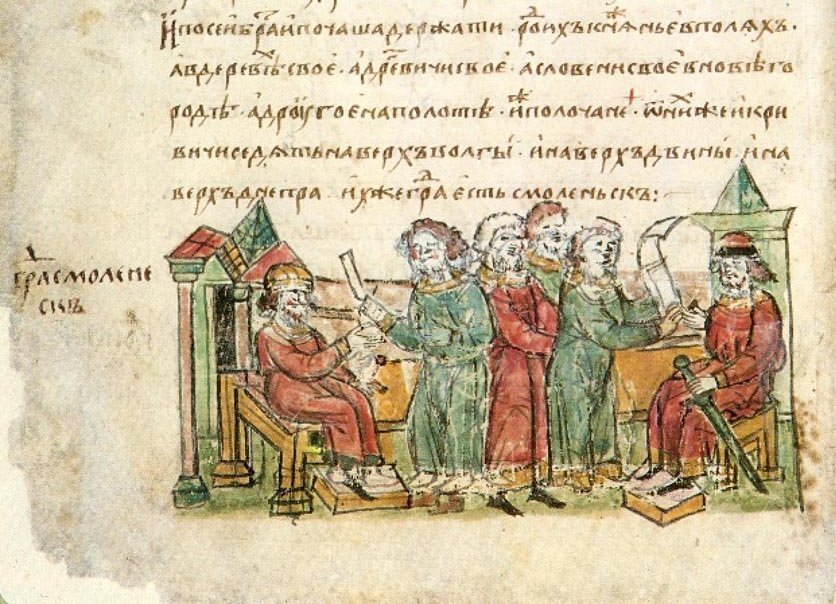 И по сеи браⷮи почаша держати · роⷣ ихъ кнѧⷤнье в полѧхъ ·
а в деревлѣⷯ свое · а дреⷢвичи свое · а словени свое в новѣго
родѣ · а дроугое на полотѣ · иⷤ полочане · ѿ ниⷯ же и кри
вичи седѧть на верхъ волгы · и на верхъ двины · и на
верхъ днепра · ихже граⷣ есть смоленьскъ :
граⷣ смолене
скъ